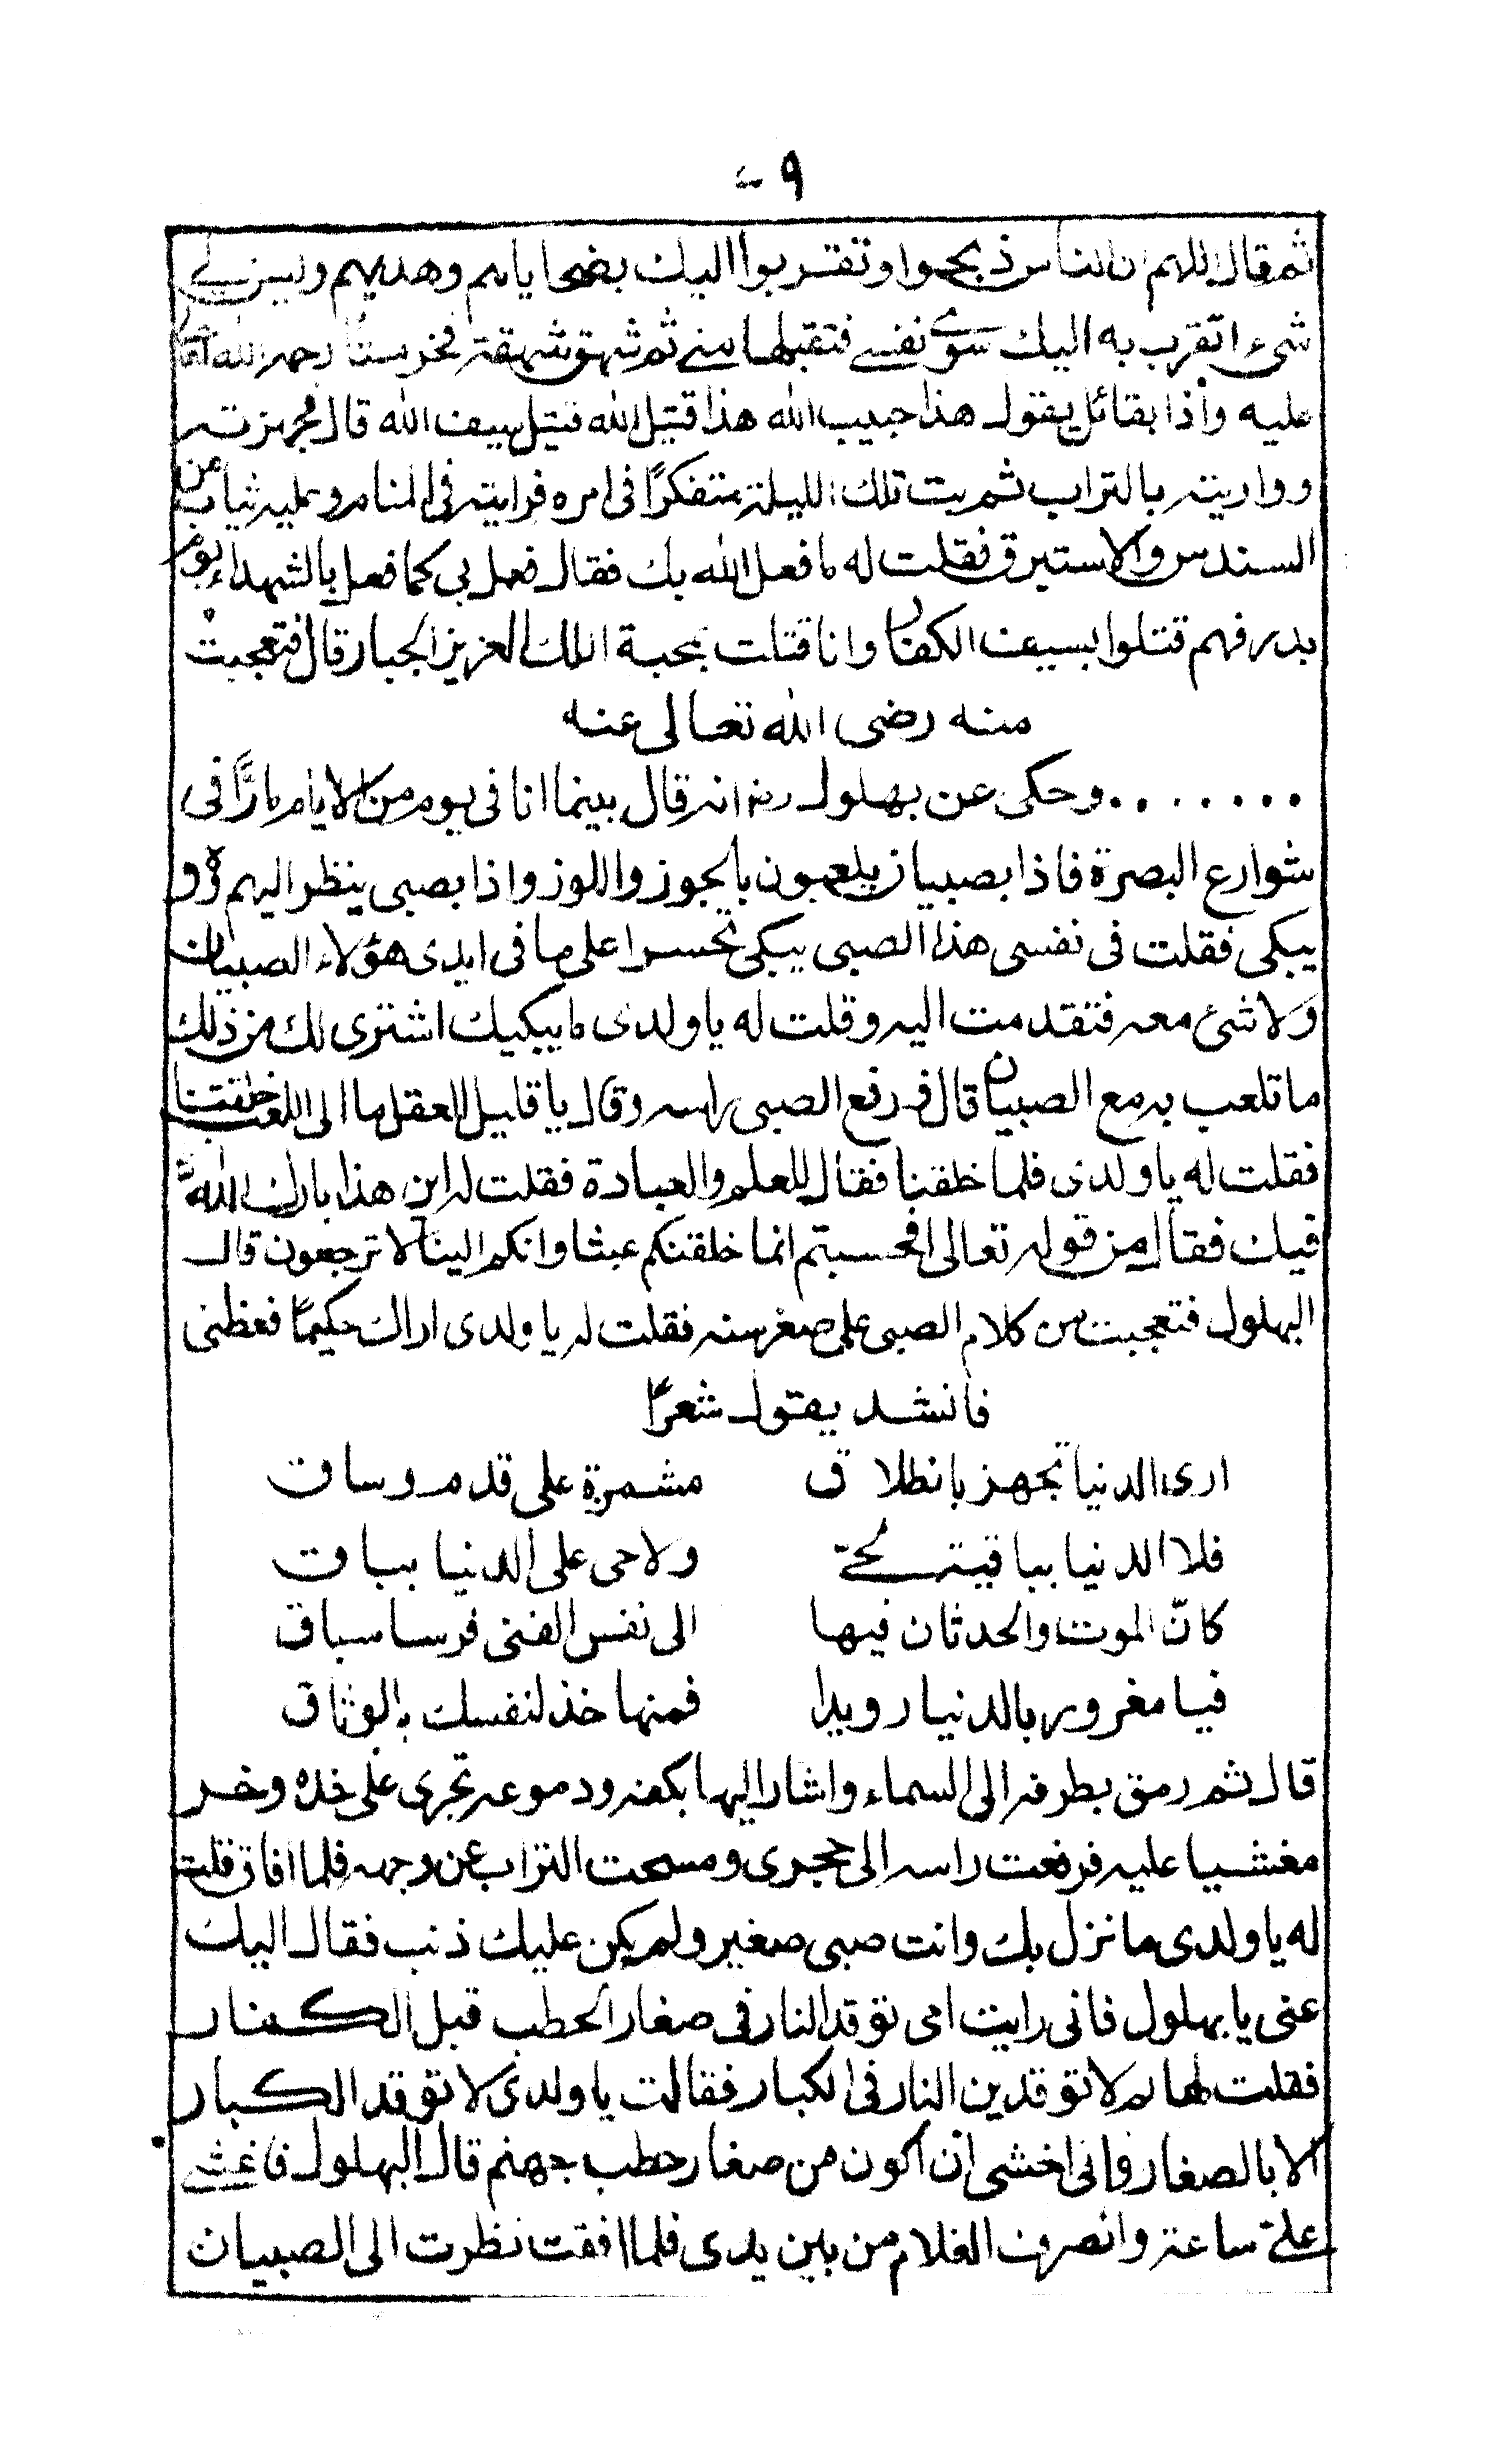 ٩
ثم قال اللهم ان الناس ذبحوا وتقربوا اليك بضحاياهم وهديهم وليس لى
شىء اتقرب به اليك سوى نفسى فتقبلها منى ثم شهق شهقة فخر ميتا رحمة الله تعالى
عليه واذا بقائل يقول هذا حبيب الله هذا قتيل الله قتيل سيف الله قال فجهزته
وواريته بالتراب ثم بت تلك الليلة متفكرًا فى امره فرايته فى المنام وعليه ثياب من
السندس والاستبرق فقلت له ما فعل الله بك فقال فعل بى كما فعل بالشهداء يوم
بدر فهم قتلوا بسيف الكفار وانا قتلت بمحبة الملك العزيز الجبار قال فتعجبت
منه رضى الله تعالى عنه
........ وحكى عن بهلول رضـ انه قال بينما انا فى يوم من الايام مارًّا فى
شوارع البصرة فاذا بصبيان يلعبون بالجوز واللوز واذا بصبى ينظر اليهم و
يبكى فقلت فى نفسى هذا الصبى يبكى تحسرا على ما فى ايدى هؤلاء الصبيان
ولا شئ معه فتقدمت اليه وقلت له يا ولدى ما يبكيك اشترى لك من ذلك
ما تلعب به مع الصبيان قال فرفع الصبى راسه وقال يا قليل العقل ما الى اللعب خلقتنا
فقلت له يا ولدى فلما خلقنا فقال للعلم والعبادة فقلت له اين هذا بارك الله
فيك فقال من قوله تعالى افحسبتم انما خلقنكم عبثا وانكم الينا لا ترجعون قال
البهلول فتعجبت من كلام الصبى على صغر سنه فقلت له يا ولدى اراك حكيمًا فعظنى
فانشد يقول شعرًا
ارى الدنيا تجهز بانطلاق مشمرة على قدم وساق
فلا الدنيا بباقية لحى ولا حى على الدنيا بباق
كانّ الموت والحدثان فيها الى نفس الفتى فرسا سباق
فيا مغرور بالدنيا رويدا فمنها خذ لنفسك بالوثاق
قال ثم رمق بطرفه الى السماء واشار اليها بكفه ودموعه تجرى على خده وخر
مغشيا عليه فرفعت راسه الى حجرى ومسحت التراب عن وجهه فلما افاق قلت
له يا ولدى ما نزل بك وانت صبى صغير ولم يكن عليك ذنب فقال اليك
عنى يا بهلول فانى رايت امى توقد النار فى صغار الحطب قبل الكبار
فقلت لها لم لا توقدين النار فى الكبار فقالت يا ولدى لا توقد الكبار
الا بالصغار وانى اخشى ان اكون من صغار حطب جهنم قال البهلول فاغشى
علىّ ساعة وانصرف الغلام من بين يدى فلما افقت نظرت الى الصبيان